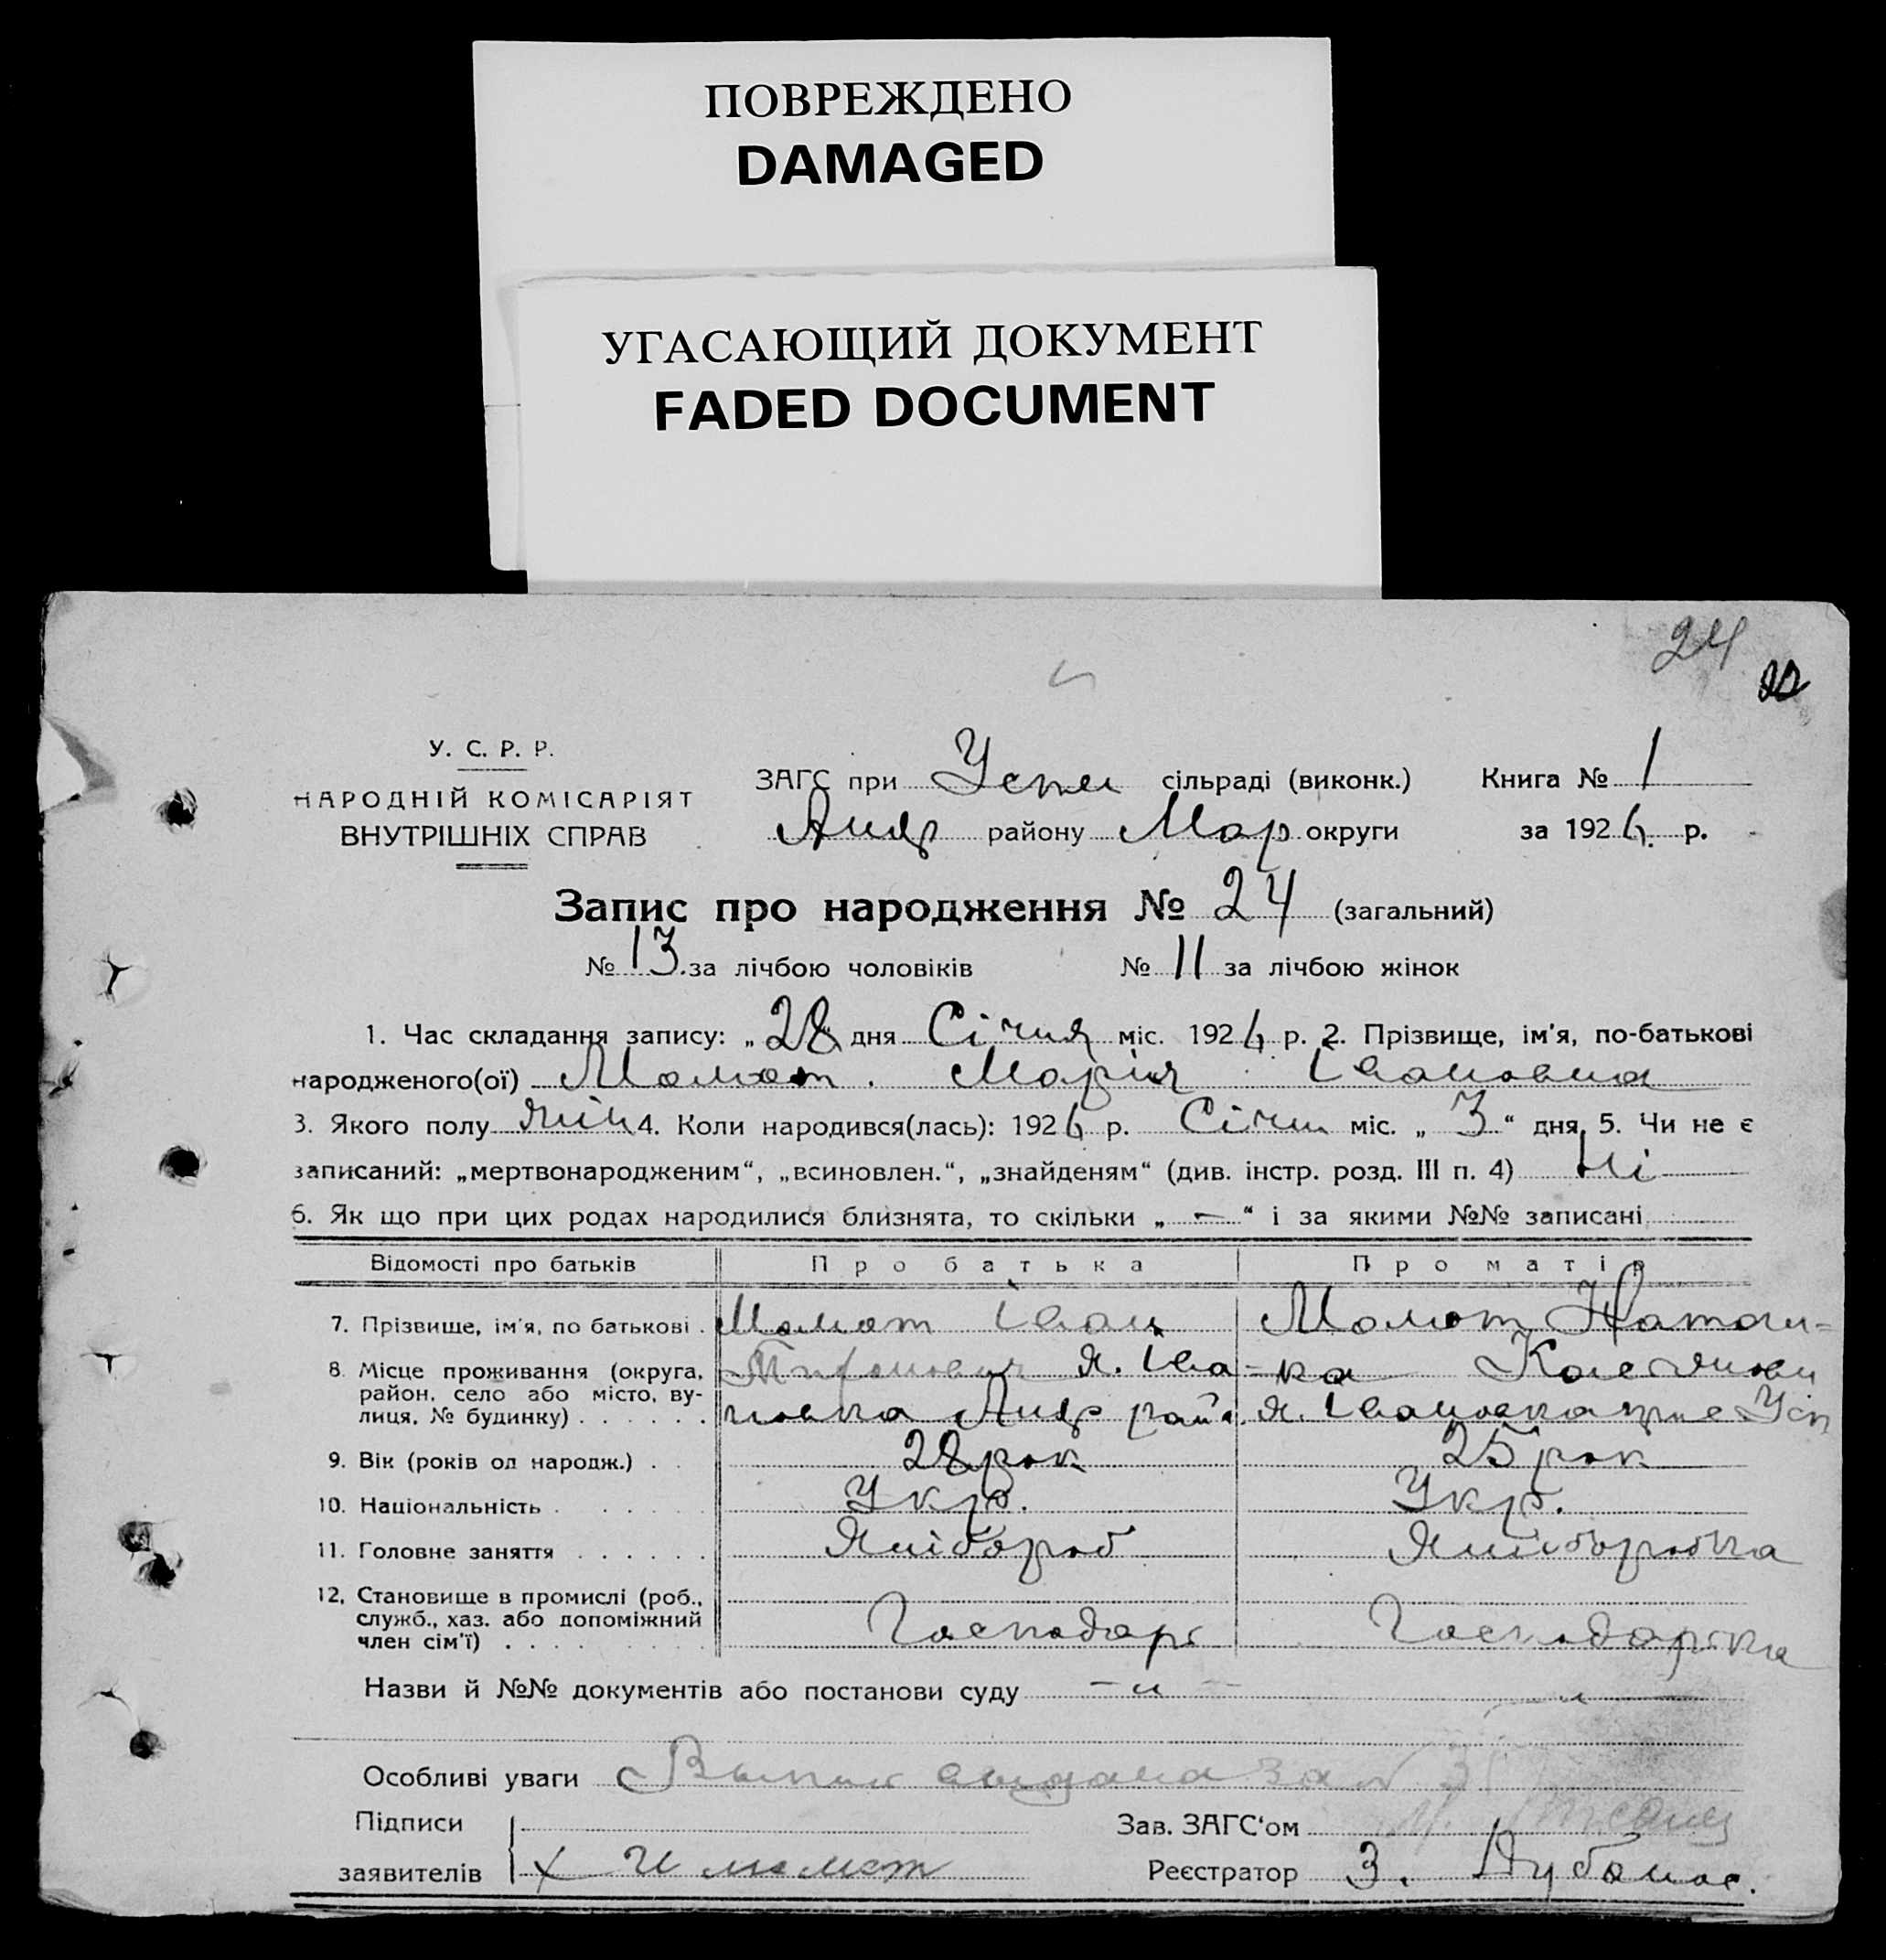 ПОВРЕЖДЕНО
DAMAGED
УГАСАЮЩИЙ ДОКУМЕНТ
FADED DOCUMENT
24
22
У. С. Р. Р.
НАРОДНІЙ КОМІСАРІЯТ
ВНУТРІШНІХ СПРАВ
ЗАГС при Успен сільраді (виконк.) Книга № 1
Андр району Мар округи за 1926 р.
Запис про народження № 24 (загальний)
№ 13 за лічбою чоловіків № 11 за лічбою жінок
1. Час складання запису: „28“ дня Січня міс. 1926 р. 2. Прізвище, ім'я, по-батькові
народженого(ої) Момот Марія Івановна
3. Якого полу жін 4. Коли народився(лась): 1926 р. Січн міс. „3“ дня 5. Чи не є
записаний: „мертвонародженим“, „всиновлен.“, „знайденям“ (див. інстр. розд. III п. 4) Ні
6. Як що при цих родах народилися близнята, то скільки „ — “ і за якими №№ записані
Відомості про батьків Про батька Про матір
7. Прізвище, ім'я, по батькові . Момот Іван Момот Натал-
8. Місце проживання (округа, х. Іва- ка
район, село або місто, ву-
лиця, № будинку) . . . . . . новка Андр рай. х. Івановка Усп
9. Вік (років од народж.) . . 28 рок 25 рок
10. Національність . . . . . Укр. Укр.
11. Головне заняття . . . . . . Хлібороб Хліборобка
12. Становище в промислі (роб.,
служб., хаз. або допоміжний Господарь Господарька
член сім'ї) . . . .
Назви й №№ документів або постанови суду — „ — — „ —
Особливі уваги выдана за №
Підписи Зав. ЗАГС'ом
заявителів х И момот Реєстратор З.